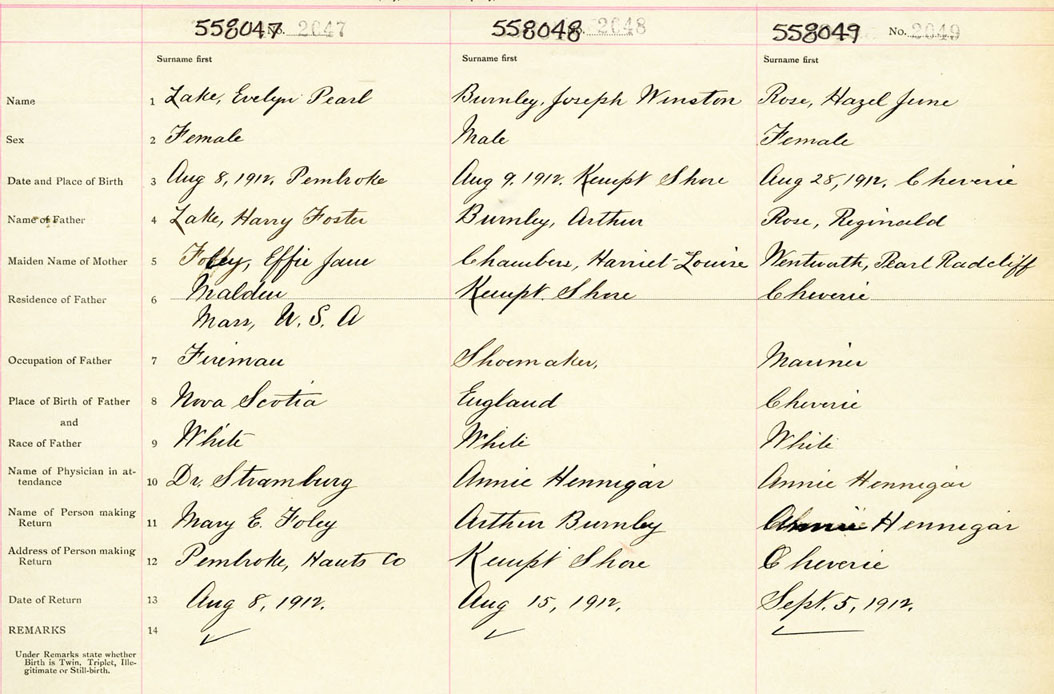 558047 No. 2647 558048 No. 2648 558049 No. 2649
Surname first Surname first Surname first
Name 1 Lake, Evelyn Pearl Burnley, Joseph Winston Rose, Hazel June
Sex 2 Female Male Female
Date and Place of Birth 3 Aug 8, 1912. Pembroke Aug 9. 1912. Kempt Shore Aug 28, 1912. Cheverie
Name of Father 4 Lake, Harry Foster Burnley, Arthur Rose, Reginald
Maiden Name of Mother 5 Foley, Effie Jane Chambers, Harriet Louise Wentworth, Pearl Radcliff
Residence of Father 6 Malden Kempt. Shore Cheverie
Mass, U. S. A
Occupation of Father 7 Fireman Shoemaker, Mariner
Place of Birth of Father 8 Nova Scotia England Cheverie
and
Race of Father 9 White White White
Name of Physician in at-
tendance 10 Dr. Stramburg Annie Hennigar Annie Hennigar
Name of Person making
Return 11 Mary E. Foley Arthur Burnley Annie Hennigar
Address of Person making
Return 12 Pembroke, Hants Co Kempt Shore Cheverie
Date of Return 13 Aug 8, 1912. Aug 15, 1912. Sept. 5, 1912.
REMARKS 14
Under Remarks state whether
Birth is Twin, Triplet, Ille-
gitimate or Still-birth.